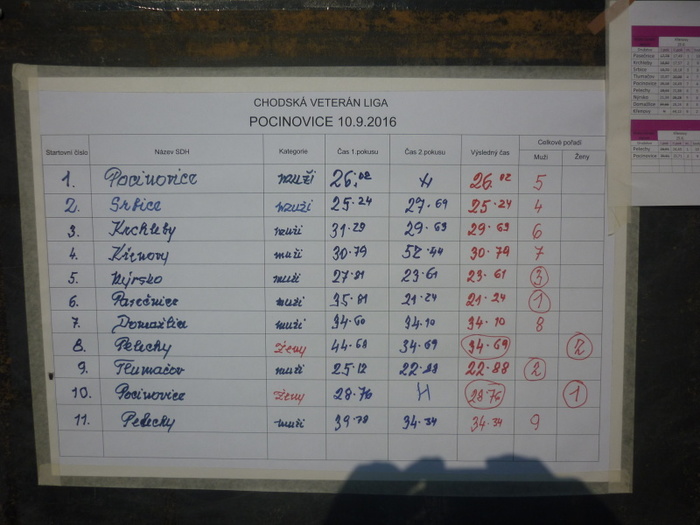 CHODSKÁ VETERÁN LIGA
POCINOVICE 10.9.2016
Startovní číslo Název SDH Kategorie Čas 1.pokusu Čas 2.pokusu Výsledný čas Celkové pořadí
Muži Ženy
1. Pocinovice muži 26.02 26.02 5
2. Srbice muži 25.24 27.69 25.24 4
3. Krchleby muži 31.29 29.69 29.69 6
4. muži 30.79 52.44 30.79 7
5. Nýrsko muži 27.81 23.61 23.61 3
6. Pasečnice muži 35.81 21.24 21.24 1
7. Domažlice muži 34.60 34.10 34.10 8
8. Pelechy ženy 44.68 34.69 34.69 2
9. Tlumačov muži 25.12 22.88 22.88 2
10. Pocinovice ženy 28.76 28.76 1
11. Pelechy muži 39.78 34.34 34.34 9